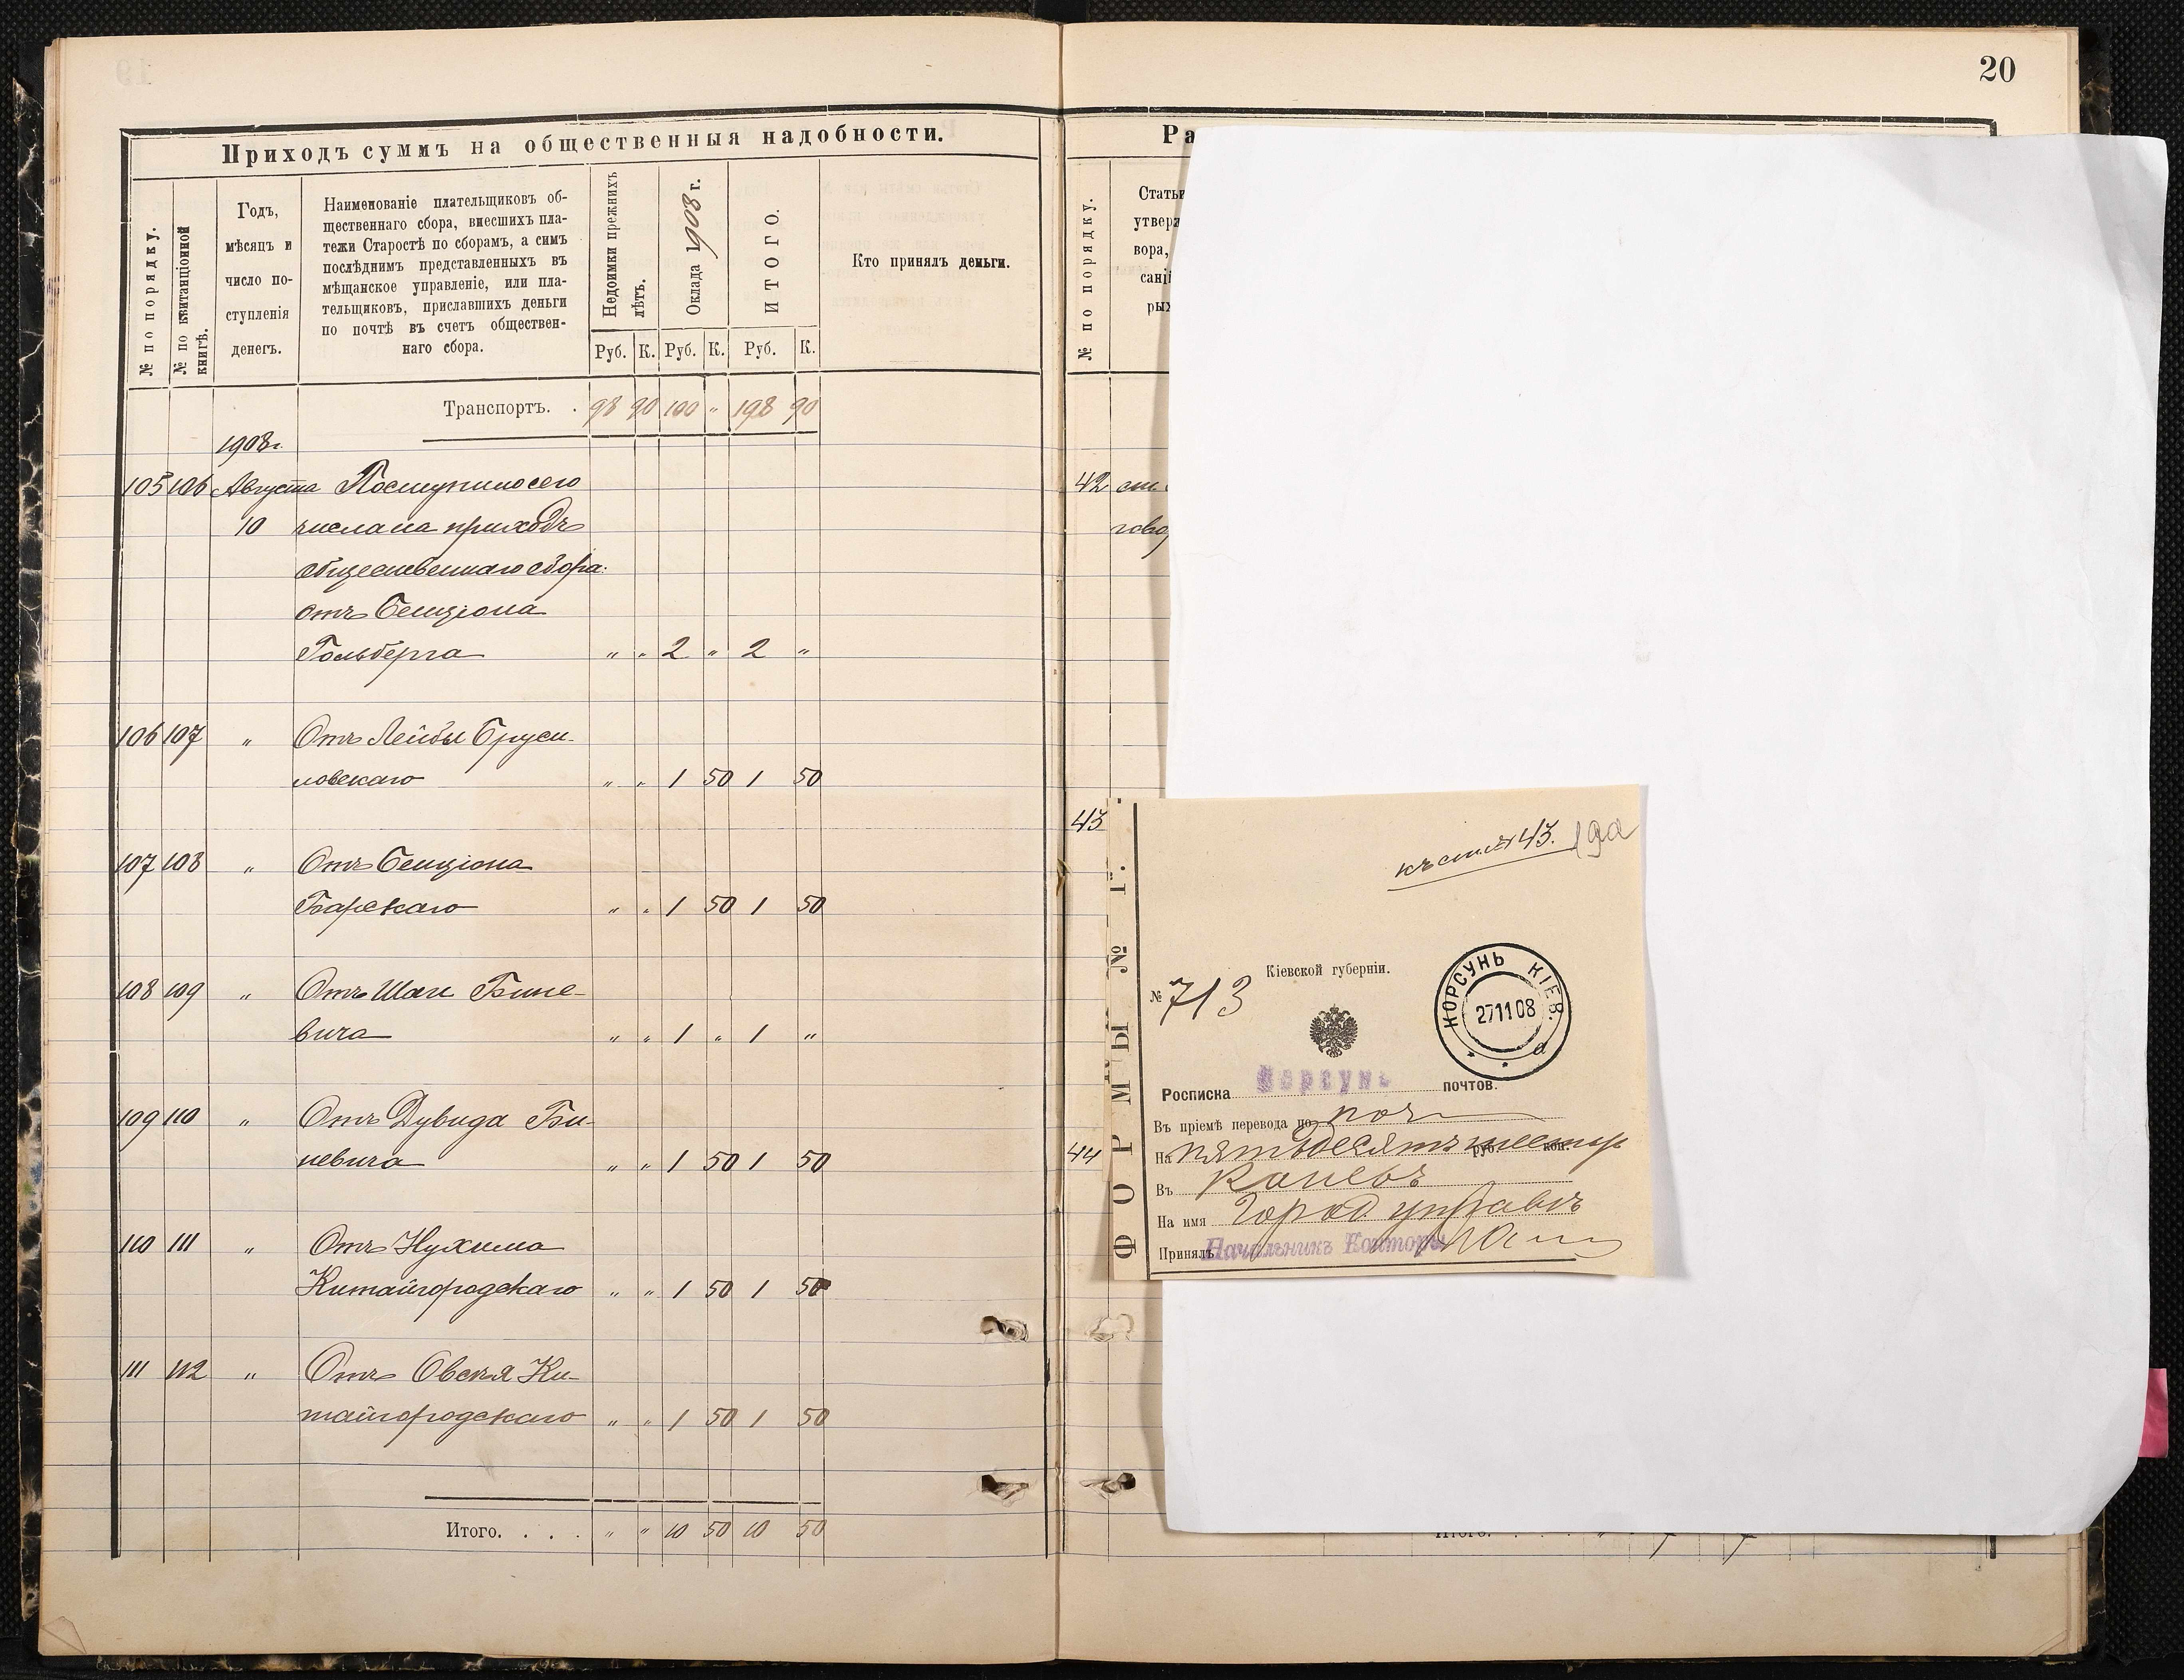 20
Приходъ суммъ на общественныя надобности.
№ по порядку.
№ по квитанціонной книгѣ.
Годъ,
мѣсяцъ и
число по-
ступленія
денегъ.
Наименованіе плательщиковъ об-
щественнаго сбора, внесшихъ пла-
тежи Старостѣ по сборамъ, а симъ
послѣднимъ представленныхъ въ
мѣщанское управленіе, или пла-
тельщиковъ, приславшихъ деньги
по почтѣ въ счетъ обществен-
наго сбора.
Недоимки прежнихъ лѣтъ.
Оклада 1908 г.
ИТОГО.
Кто принялъ деньги.
Руб. К. Руб. К. Руб. К.
Транспортъ. . 98 90 100 " 198 90
1908 г.
105 106 Августа Поступило сего
10 числа на приходъ
общественнаго сбора:
отъ Бенціона
Гольберга " " 2 " 2 "
106 107 " Отъ Лейбы Бруси-
ловскаго " " 1 50 1 50
107 108 " Отъ Бенціона
Барскаго " " 1 50 1 50
108 109 " Отъ Шаи Бине-
вича " " 1 " 1 "
109 110 " Отъ Дувида Би-
невича " " 1 50 1 50
110 111 " Отъ Нухима
Китайгородскаго " " 1 50 1 50
111 112 " Отъ Овсея Ки-
тайгородскаго " " 1 50 1 50
Итого. . . . " " 10 50 10 50
Ра
№ по порядку.
Стать
утверж
вора,
сані
рых
42 ст.
гово
43
44
ФОРМЫ № Г.
къ ст. № 43. 19а
Кіевской губерніи.
№ 713
КОРСУНЬ КІЕВ.
271108
а
Росписка Корсунь почтов.
Въ пріемѣ перевода по поч
На пятьдесятъ шесть руб. коп.
Въ Каневъ
На имя Город управъ
Принялъ Начальникъ Конторы
Итого.